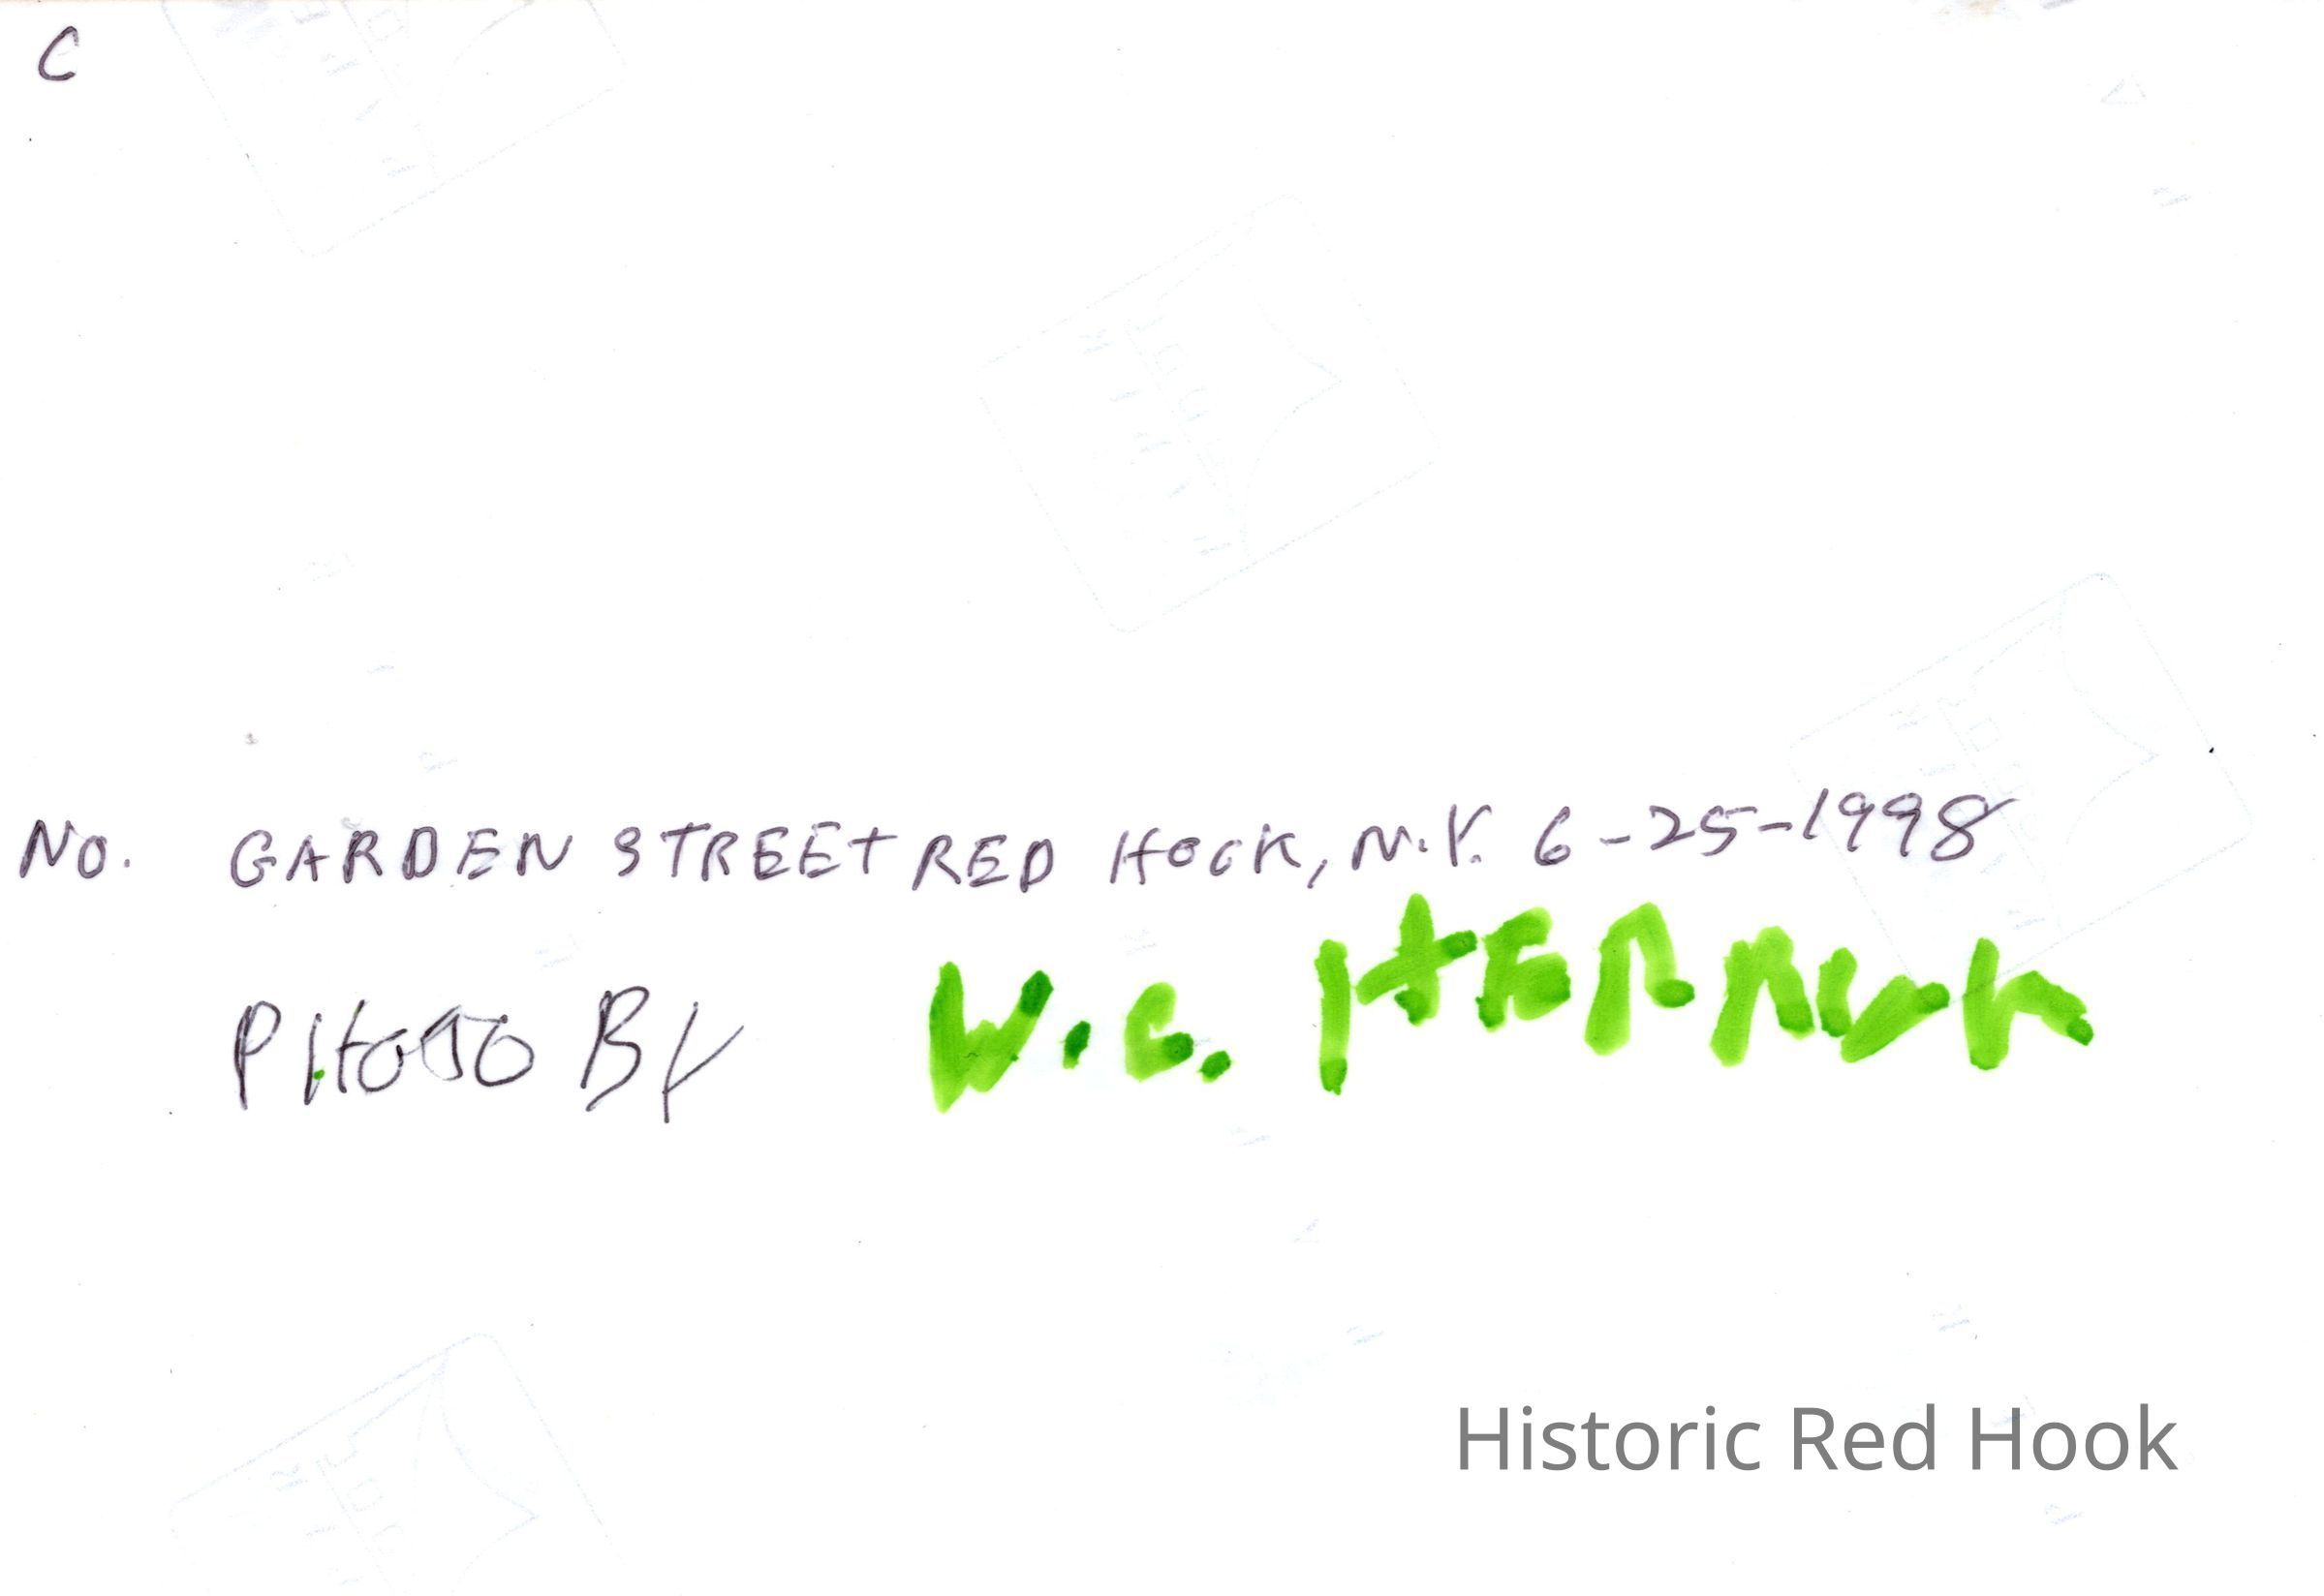 C
No. GARDEN STREET RED HOOK, N.Y. 6-25-1998
PHOTO BY W.C.
Historic Red Hook